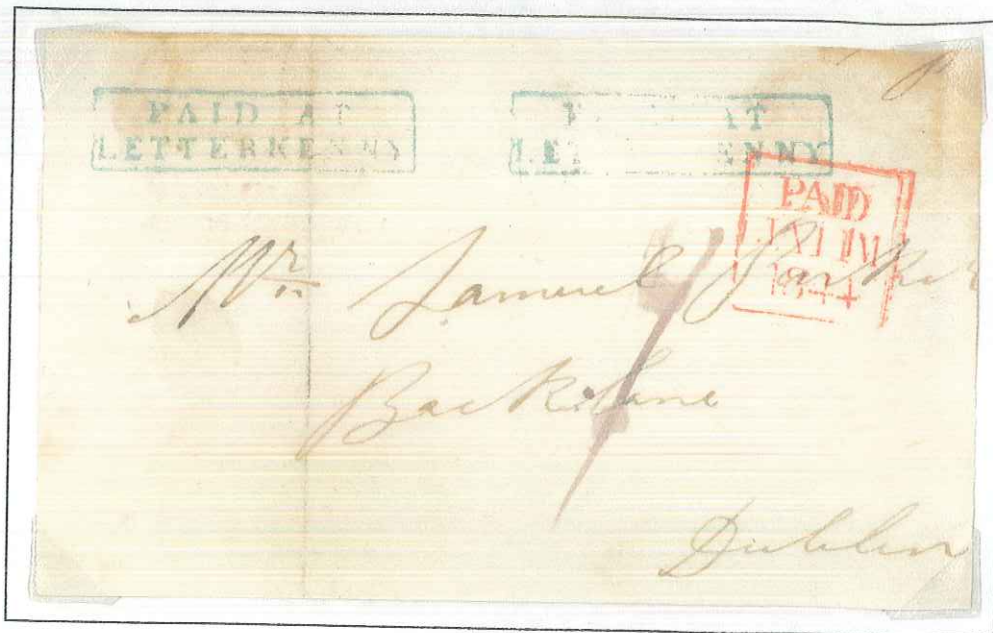 PAID AT
LETTERKENNY
AT
LE ENNY
PAID
1844
Mr Samuel
Back Lane
Dublin